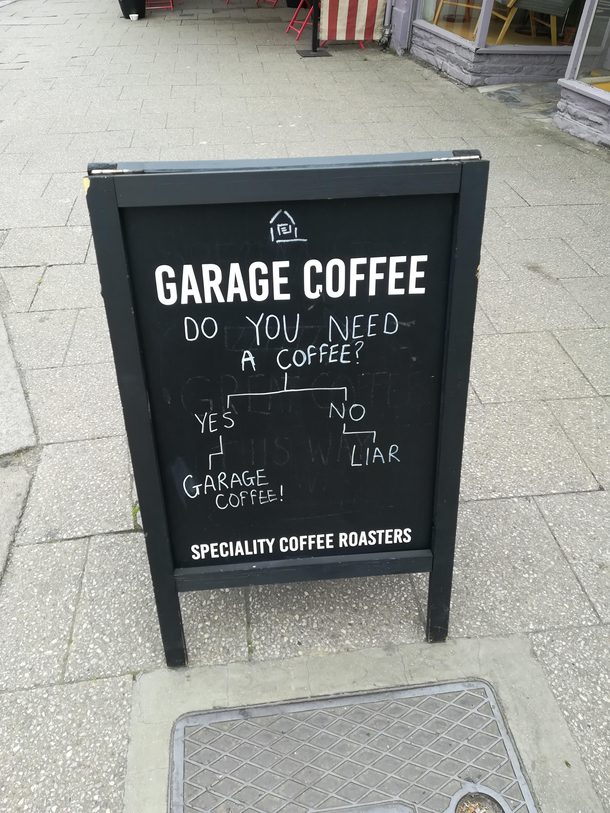 GARAGE COFFEE
DO YOU NEED
A COFFEE?
YES NO
LIAR
GARAGE
COFFEE!
SPECIALITY COFFEE ROASTERS